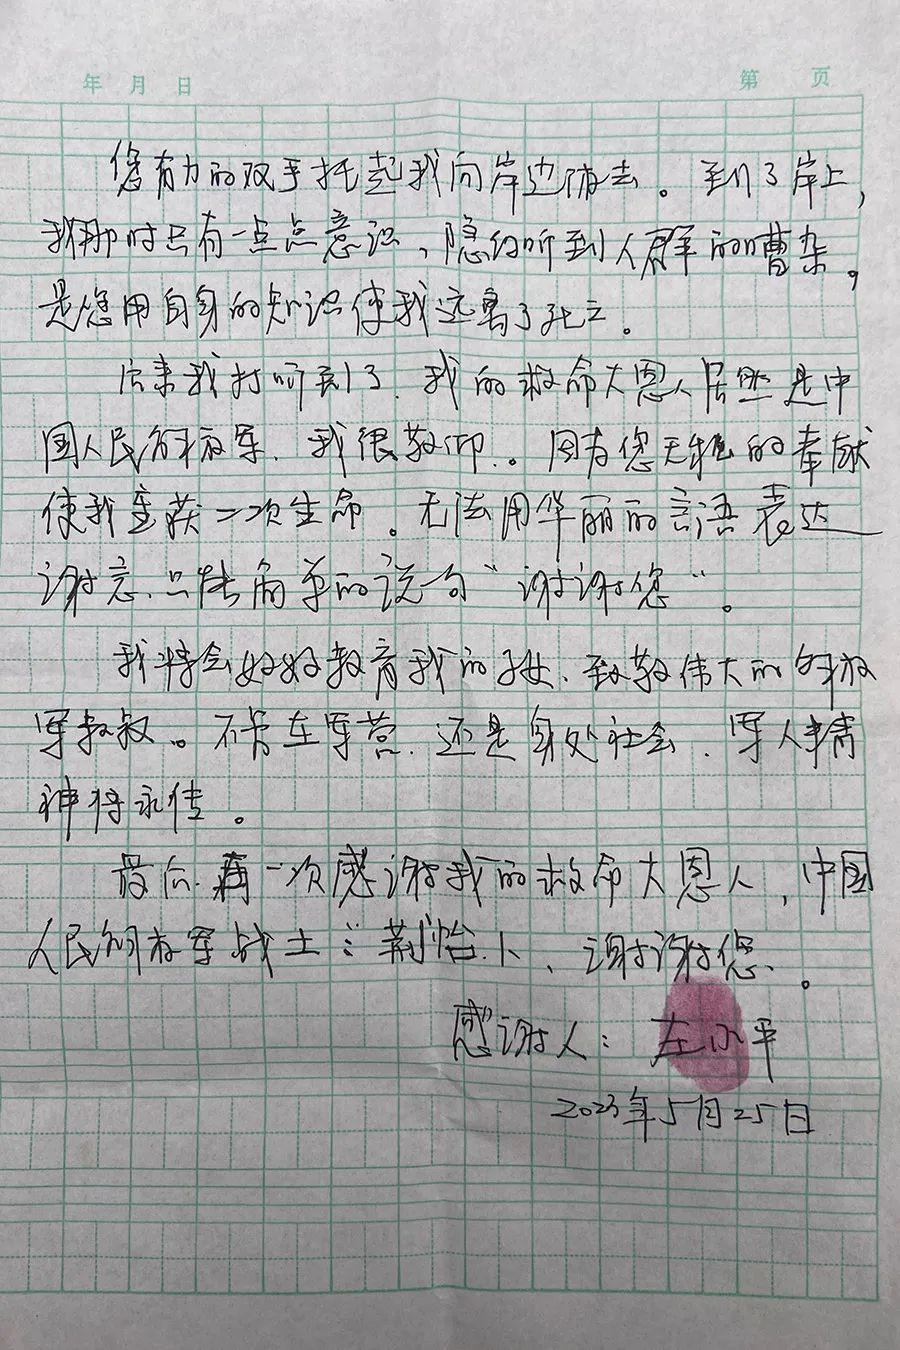 年 月 日 第 页
您有力的双手托起我向岸边游去。到了岸上，
我那时只有一点点意识，隐约听到人群的嘈杂。
是您用自身的知识使我远离了死亡。
后来我打听到了，我的救命大恩人居然是中
国人民解放军，我很敬仰。因为您无私的奉献
使我重获二次生命。无法用华丽的言语表达
谢意，只能简单的说一句“谢谢您”。
我将会好好教育我的子女，致敬伟大的解放
军叔叔。不论在军营，还是身处社会，军人精
神将永传。
最后，再一次感谢我的救命大恩人，中国
人民解放军战士：荆怡卜，谢谢您。
感谢人：左小平
2023年5月25日